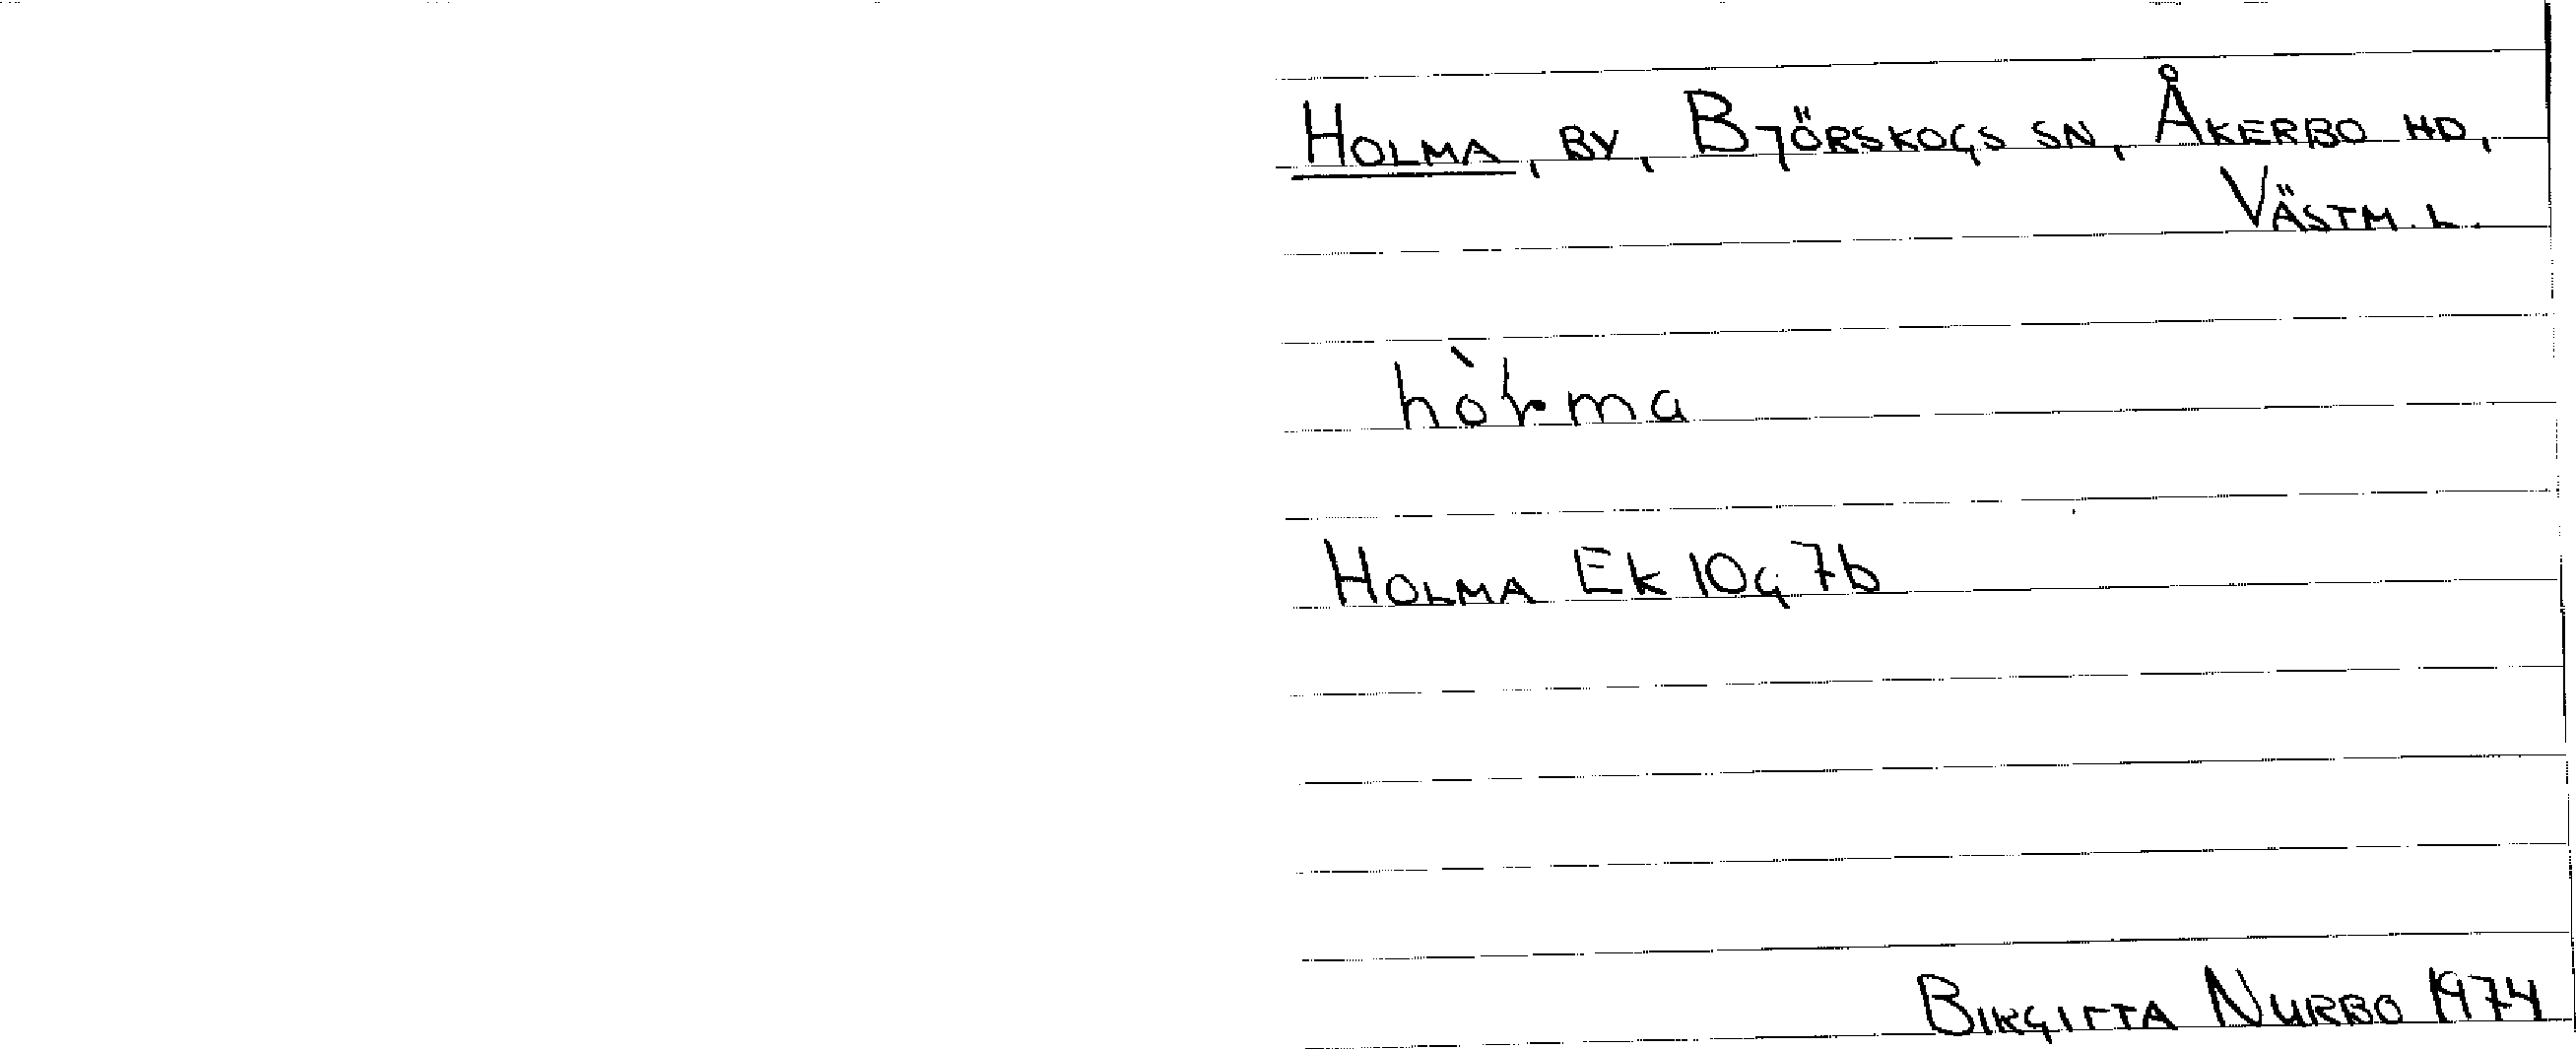 HOLMA, BY, BJÖRSKOGS SN, ÅKERBO HD,
VÄSTM. L.
hòɽma
HOLMA EK 10G 7b
BIRGITTA NURBO 1974